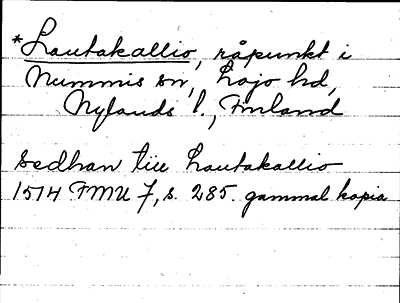 *Lautakallio, råpunkt i
Nummis sn, Lojo hd,
Nylands l., Finland
Sedhan till Lautakallio
1514 FMU 7, s. 285. gammal kopia